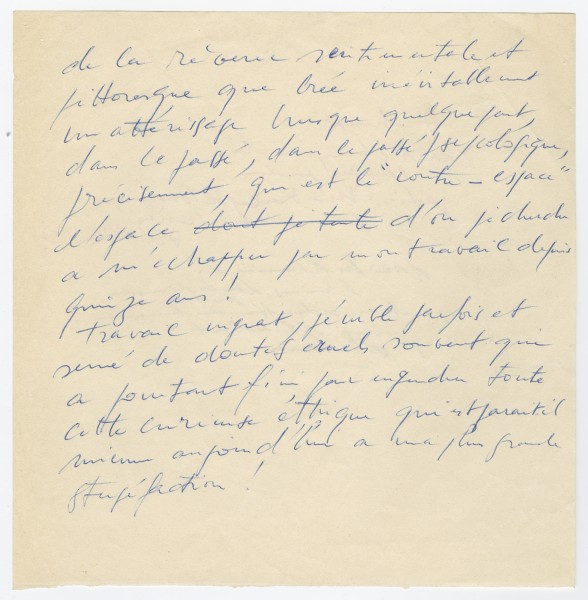 de la rêverie sentimentale et
pittoresque que crée inévitablement
un attérissage brusque quelque part,
dans le passé, dans le passé psycologique,
précisement, qui est le "contre-espace"
l'espace dont je tente d'ou je cherche
a m'échapper par mon travail depuis
quinze ans!
Travail ingrat, pénible parfois et
semé de doutes cruels souvent qui
a pourtant fini par engendrer toute
cette curieuse éthique qui est parait il
mienne aujourd'hui a ma plus grande
stupéfaction!